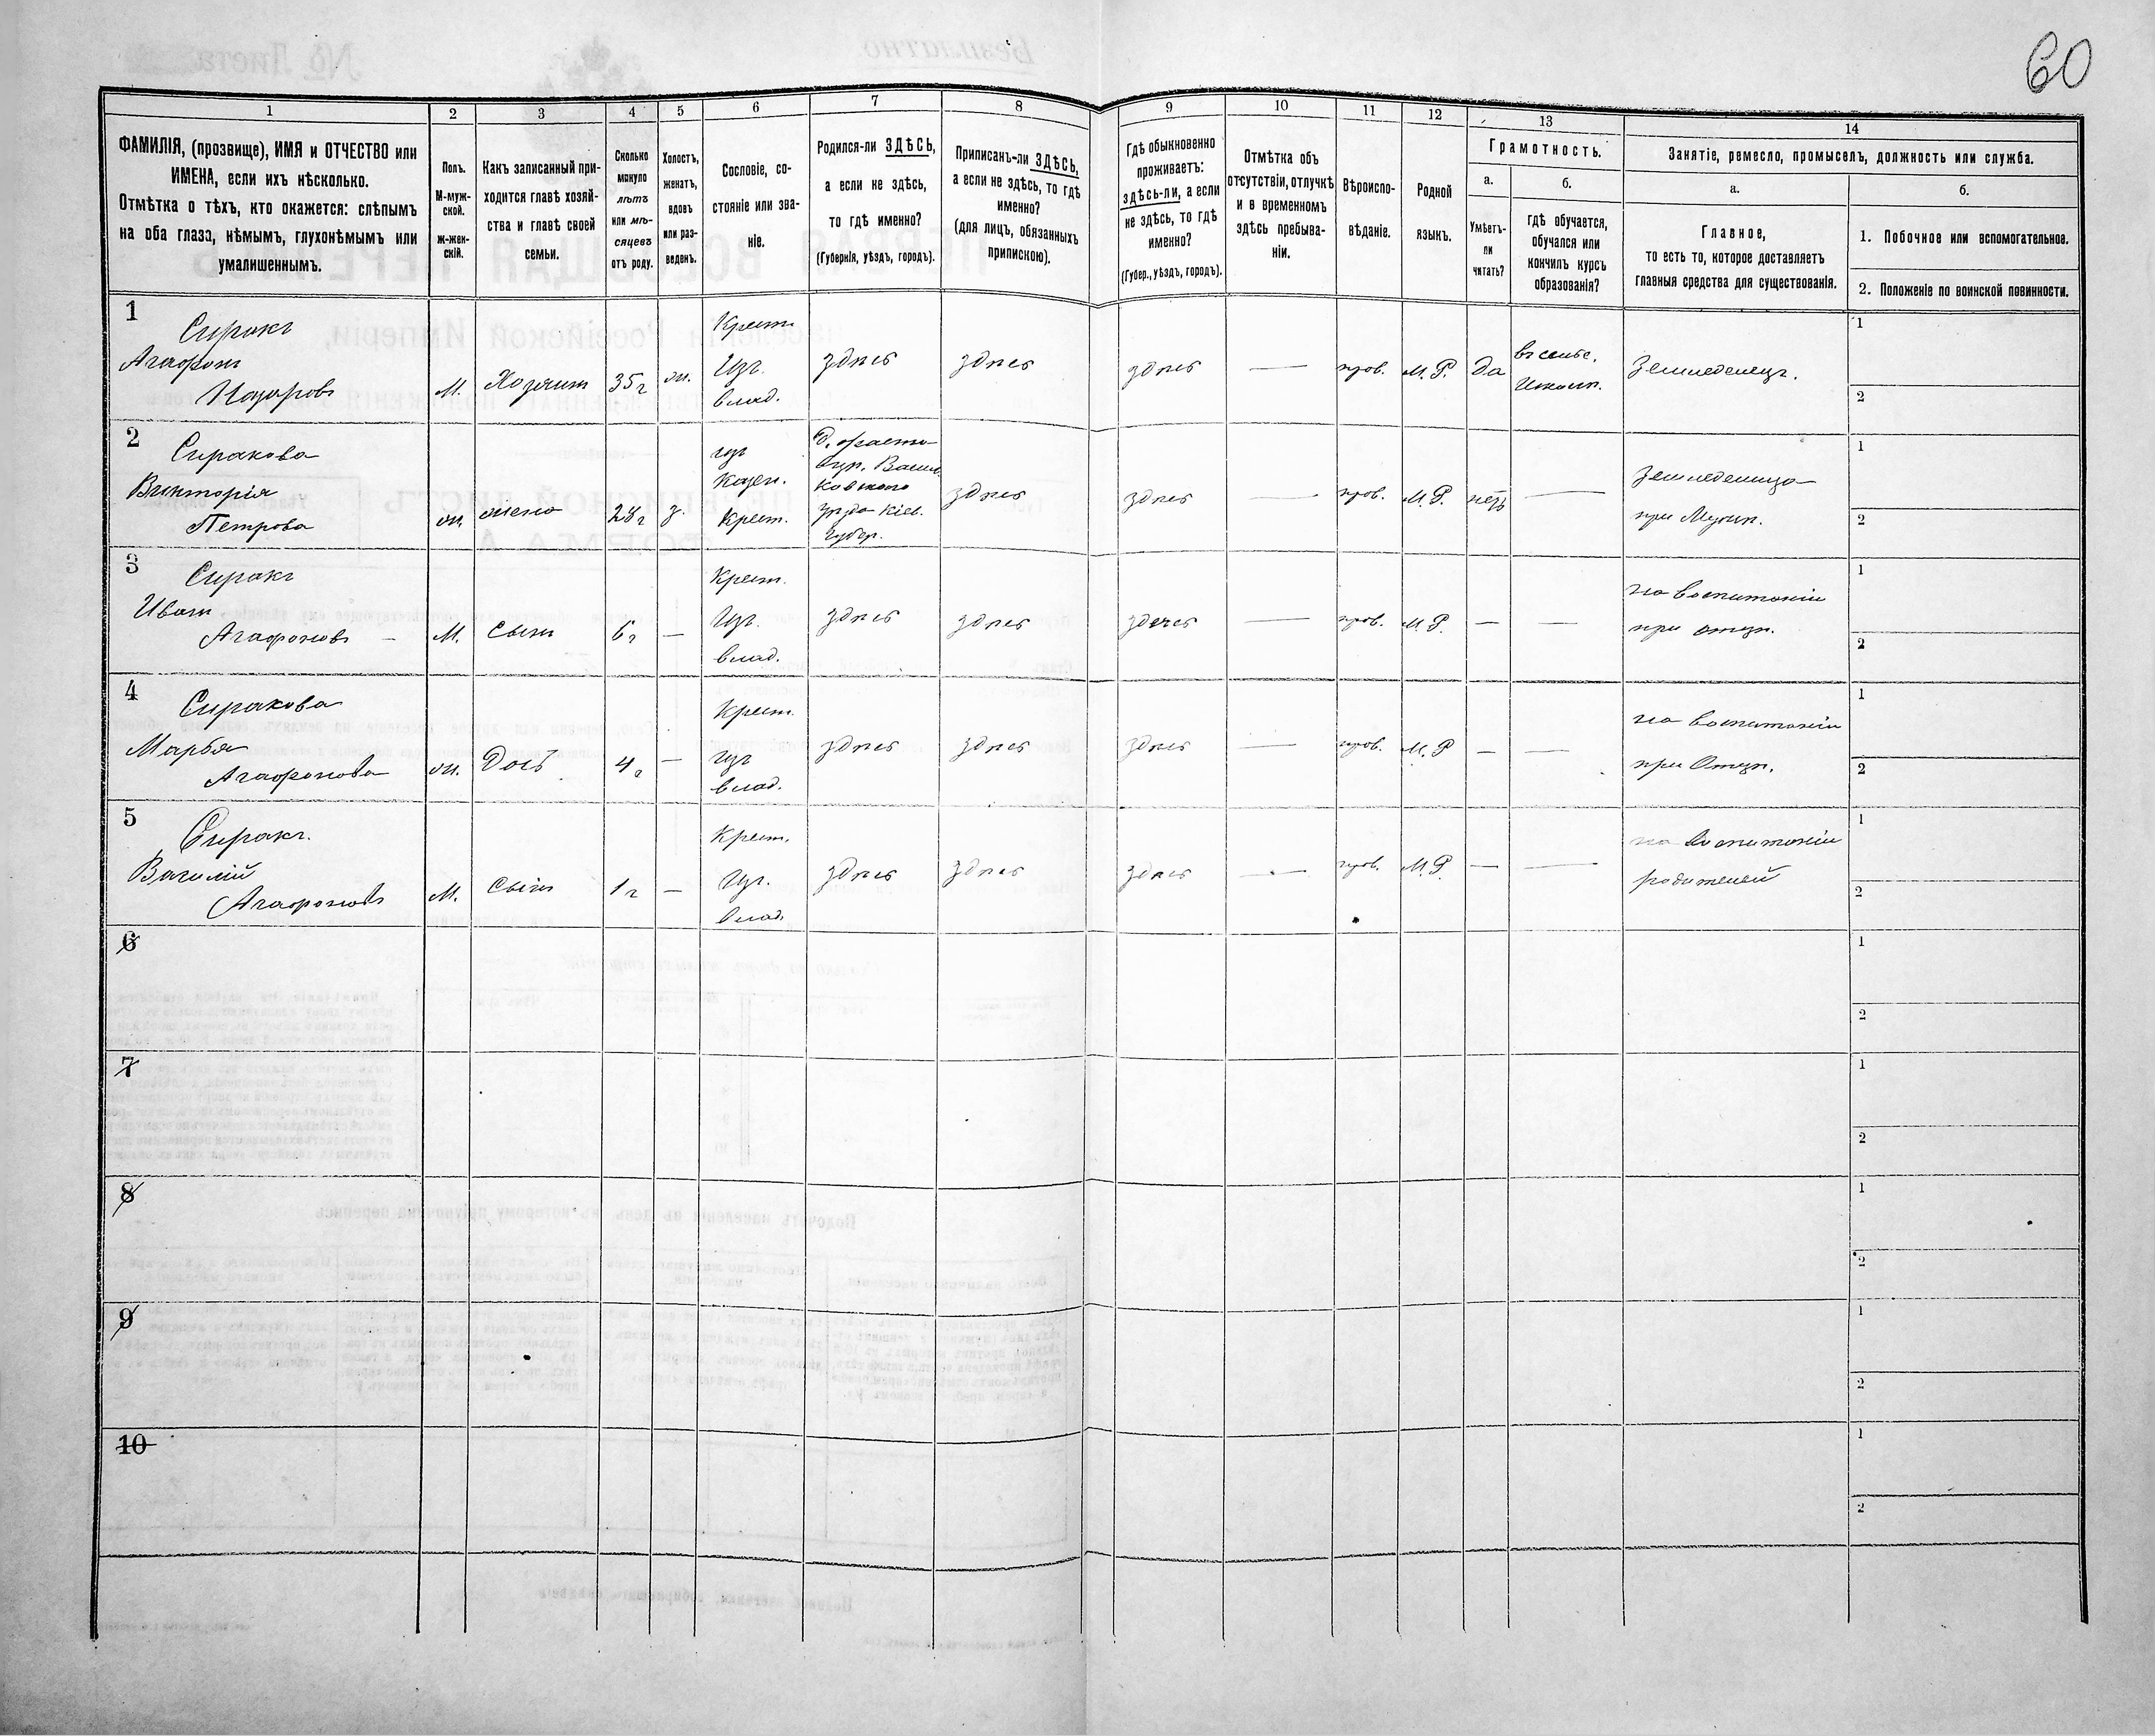 60
1
2
3
4
5
6
7
8
9
10
11
12
13
14
ФАМИЛІЯ, (прозвище), ИМЯ и ОТЧЕСТВО или
ИМЕНА, если ихъ нѣсколько.
Отмѣтка о тѣхъ, кто окажется: слѣпымъ
на оба глаза, нѣмымъ, глухонѣмымъ или
умалишеннымъ.
Полъ.
М-муж-
ской.
ж-жен-
скій.
Какъ записанный при-
ходится главѣ хозяй-
ства и главѣ своей
семьи.
Сколько
минуло
лѣтъ
или мѣ-
сяцевъ
отъ роду.
Холостъ,
женатъ,
вдовъ
или раз-
веденъ.
Сословіе, со-
стояніе или зва-
ніе.
Родился-ли ЗДѢСЬ,
а если не здѣсь,
то гдѣ именно?
(Губернія, уѣздъ, городъ).
Приписанъ-ли ЗДѢСЬ,
а если не здѣсь, то гдѣ
именно?
(для лицъ, обязанныхъ
припискою).
Гдѣ обыкновенно
проживаетъ:
здѣсь-ли, а если
не здѣсь, то гдѣ
именно?
(Губер., уѣздъ, городъ).
Отмѣтка объ
отсутствіи, отлучкѣ
и в временномъ
здѣсь пребыва-
ніи.
Вѣроиспо-
вѣданіе.
Родной
языкъ.
Грамотность.
а.
Умѣетъ-
ли
читать?
б.
гдѣ обучается,
обучался или
кончилъ курсъ
образованія?
Занятіе, ремесло, промыселъ, должность или служба.
а.
Главное,
то есть то, которое доставляетъ
главныя средства для существованія.
б.
1. Побочное или вспомогательное.
2. Положеніе по воинской повинности.
1
Сиракъ
Агафонъ
Назаровъ
М.
Хозяинъ
35 г
ж.
Крест.
Изъ.
влад.
здѣсь
здѣсь
здѣсь
—
прав.
М. Р.
да
въ сельс.
Школѣ.
Земледелецъ.
1
2
2
Сиракова
Викторія
Петрова
ж.
жена
28 г
з.
изъ
Казен.
Крест.
Василь
ковскаго
уѣзда Кіев.
Губер.
здѣсь
здѣсь
—
прав.
М. Р.
нетъ
—
Земледелица
при Мужѣ.
1
2
3
Сиракъ
Иванъ
Агафоновъ
М.
Сынъ
6 г
—
Крест.
Изъ.
влад.
здѣсь
здѣсь
здесь
—
прав.
М. Р.
—
—
на воспитаніи
при отцѣ.
1
2
4
Сиракова
Марѳа
Агафонова
ж.
Дочь
4 г
—
Крест.
изъ
влад.
здѣсь
здѣсь
здѣсь
—
прав.
М. Р
—
—
на воспитаніи
при Отцѣ.
1
2
5
Сиракъ.
Василій
Агафоновъ
М.
Сынъ
1 г
—
Крест.
Изъ.
влад.
здѣсь
здѣсь
здѣсь
—
прав.
М. Р.
—
—
на воспитаніи
родителей
1
2
6
1
2
7
1
2
8
1
2
9
1
2
10
1
2